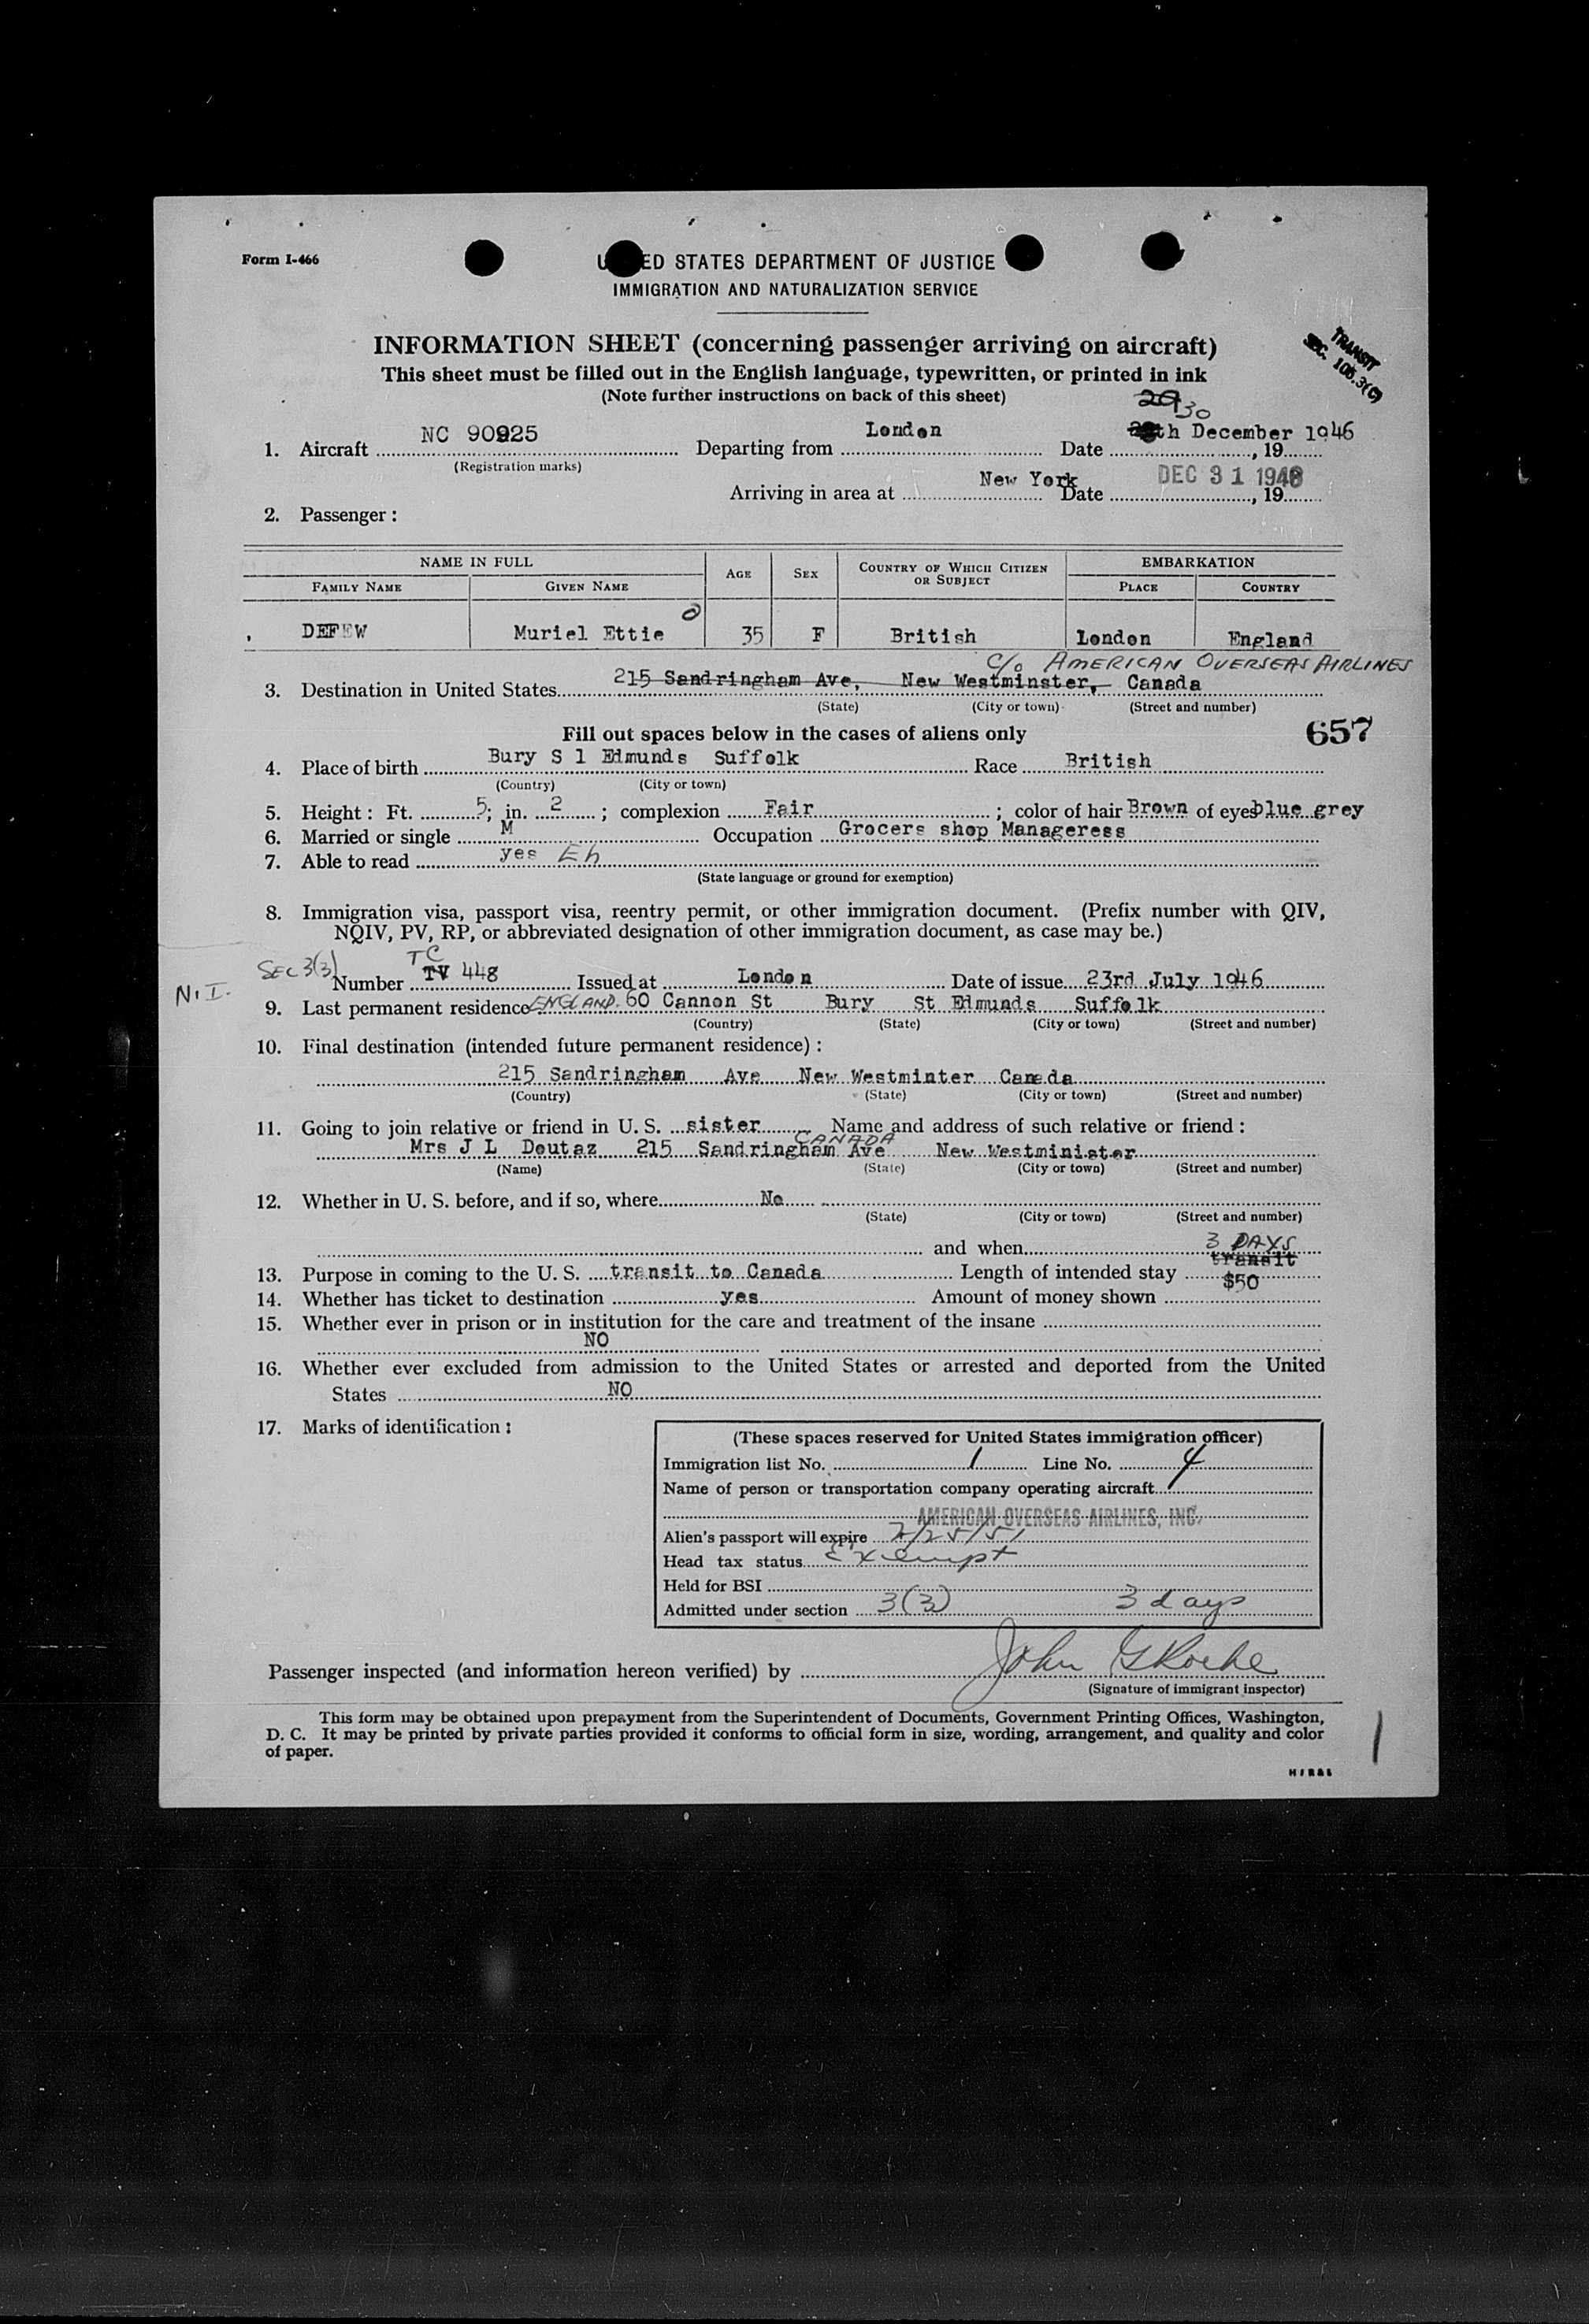 Form I-466
UNITED STATES DEPARTMENT OF JUSTICE
IMMIGRATION AND NATURALIZATION SERVICE
INFORMATION SHEET (concerning passenger arriving on aircraft)
This sheet must be filled out in the English language, typewritten, or printed in ink
(Note further instructions on back of this sheet)
TRANSIT
SEC. 108.3(C)
29 30
1. Aircraft NC 90925 Departing from London Date th December 1946, 19
(Registration marks)
Arriving in area at New York Date DEC 31 1946, 19
2. Passenger:
NAME IN FULL AGE SEX COUNTRY OF WHICH CITIZEN OR SUBJECT EMBARKATION
FAMILY NAME GIVEN NAME PLACE COUNTRY
DEFEW Muriel Ettie 35 F British London England
C/o AMERICAN OVERSEAS AIRLINES
3. Destination in United States 215 Sandringham Ave, New Westminster, Canada
(State) (City or town) (Street and number)
Fill out spaces below in the cases of aliens only 657
4. Place of birth Bury S l Edmunds Suffolk Race British
(Country) (City or town)
5. Height: Ft. 5; in. 2; complexion Fair; color of hair Brown of eyes blue grey
6. Married or single M Occupation Grocers shop Manageress
7. Able to read yes Eh
(State language or ground for exemption)
8. Immigration visa, passport visa, reentry permit, or other immigration document. (Prefix number with QIV,
NQIV, PV, RP, or abbreviated designation of other immigration document, as case may be.)
TC
SEC 3(3) Number TV 448 Issued at London Date of issue 23rd July 1946
N.I.
9. Last permanent residence ENGLAND. 60 Cannon St Bury St Edmunds Suffolk
(Country) (State) (City or town) (Street and number)
10. Final destination (intended future permanent residence):
215 Sandringham Ave New Westminter Canada
(Country) (State) (City or town) (Street and number)
11. Going to join relative or friend in U. S. sister Name and address of such relative or friend:
CANADA
Mrs J L Doutaz 215 Sandringham Ave New Westminister
(Name) (State) (City or town) (Street and number)
12. Whether in U. S. before, and if so, where No
(State) (City or town) (Street and number)
and when
3 DAYS
13. Purpose in coming to the U. S. transit to Canada Length of intended stay transit
14. Whether has ticket to destination yes Amount of money shown $50
15. Whether ever in prison or in institution for the care and treatment of the insane
NO
16. Whether ever excluded from admission to the United States or arrested and deported from the United
States NO
17. Marks of identification:
(These spaces reserved for United States immigration officer)
Immigration list No. 1 Line No. 4
Name of person or transportation company operating aircraft
AMERICAN OVERSEAS AIRLINES, INC.
Alien's passport will expire 7/25/51
Head tax status Exempt
Held for BSI
Admitted under section 3(3) 3 days
Passenger inspected (and information hereon verified) by John G Roche
(Signature of immigrant inspector)
This form may be obtained upon prepayment from the Superintendent of Documents, Government Printing Offices, Washington,
D. C. It may be printed by private parties provided it conforms to official form in size, wording, arrangement, and quality and color
of paper.